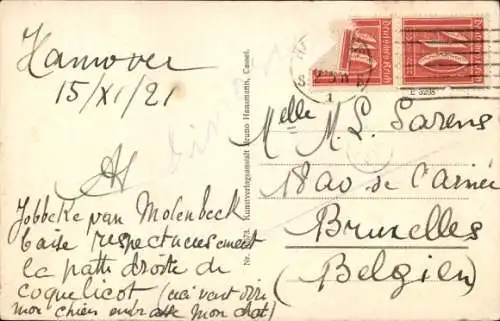 Hanover
15/XI/21
Jobbeke van Molenbeck
baise respectueusement
la patte droite de
coquelicot (ceci veut dire
mon chien embrasse mon chat)
Kunstverlagsanstalt Bruno Hansmann, Cassel.
Deutsches Reich
Deutsches Reich
Melle M. L. Sarens
18 av de l'
Bruxelles
(Belgien)